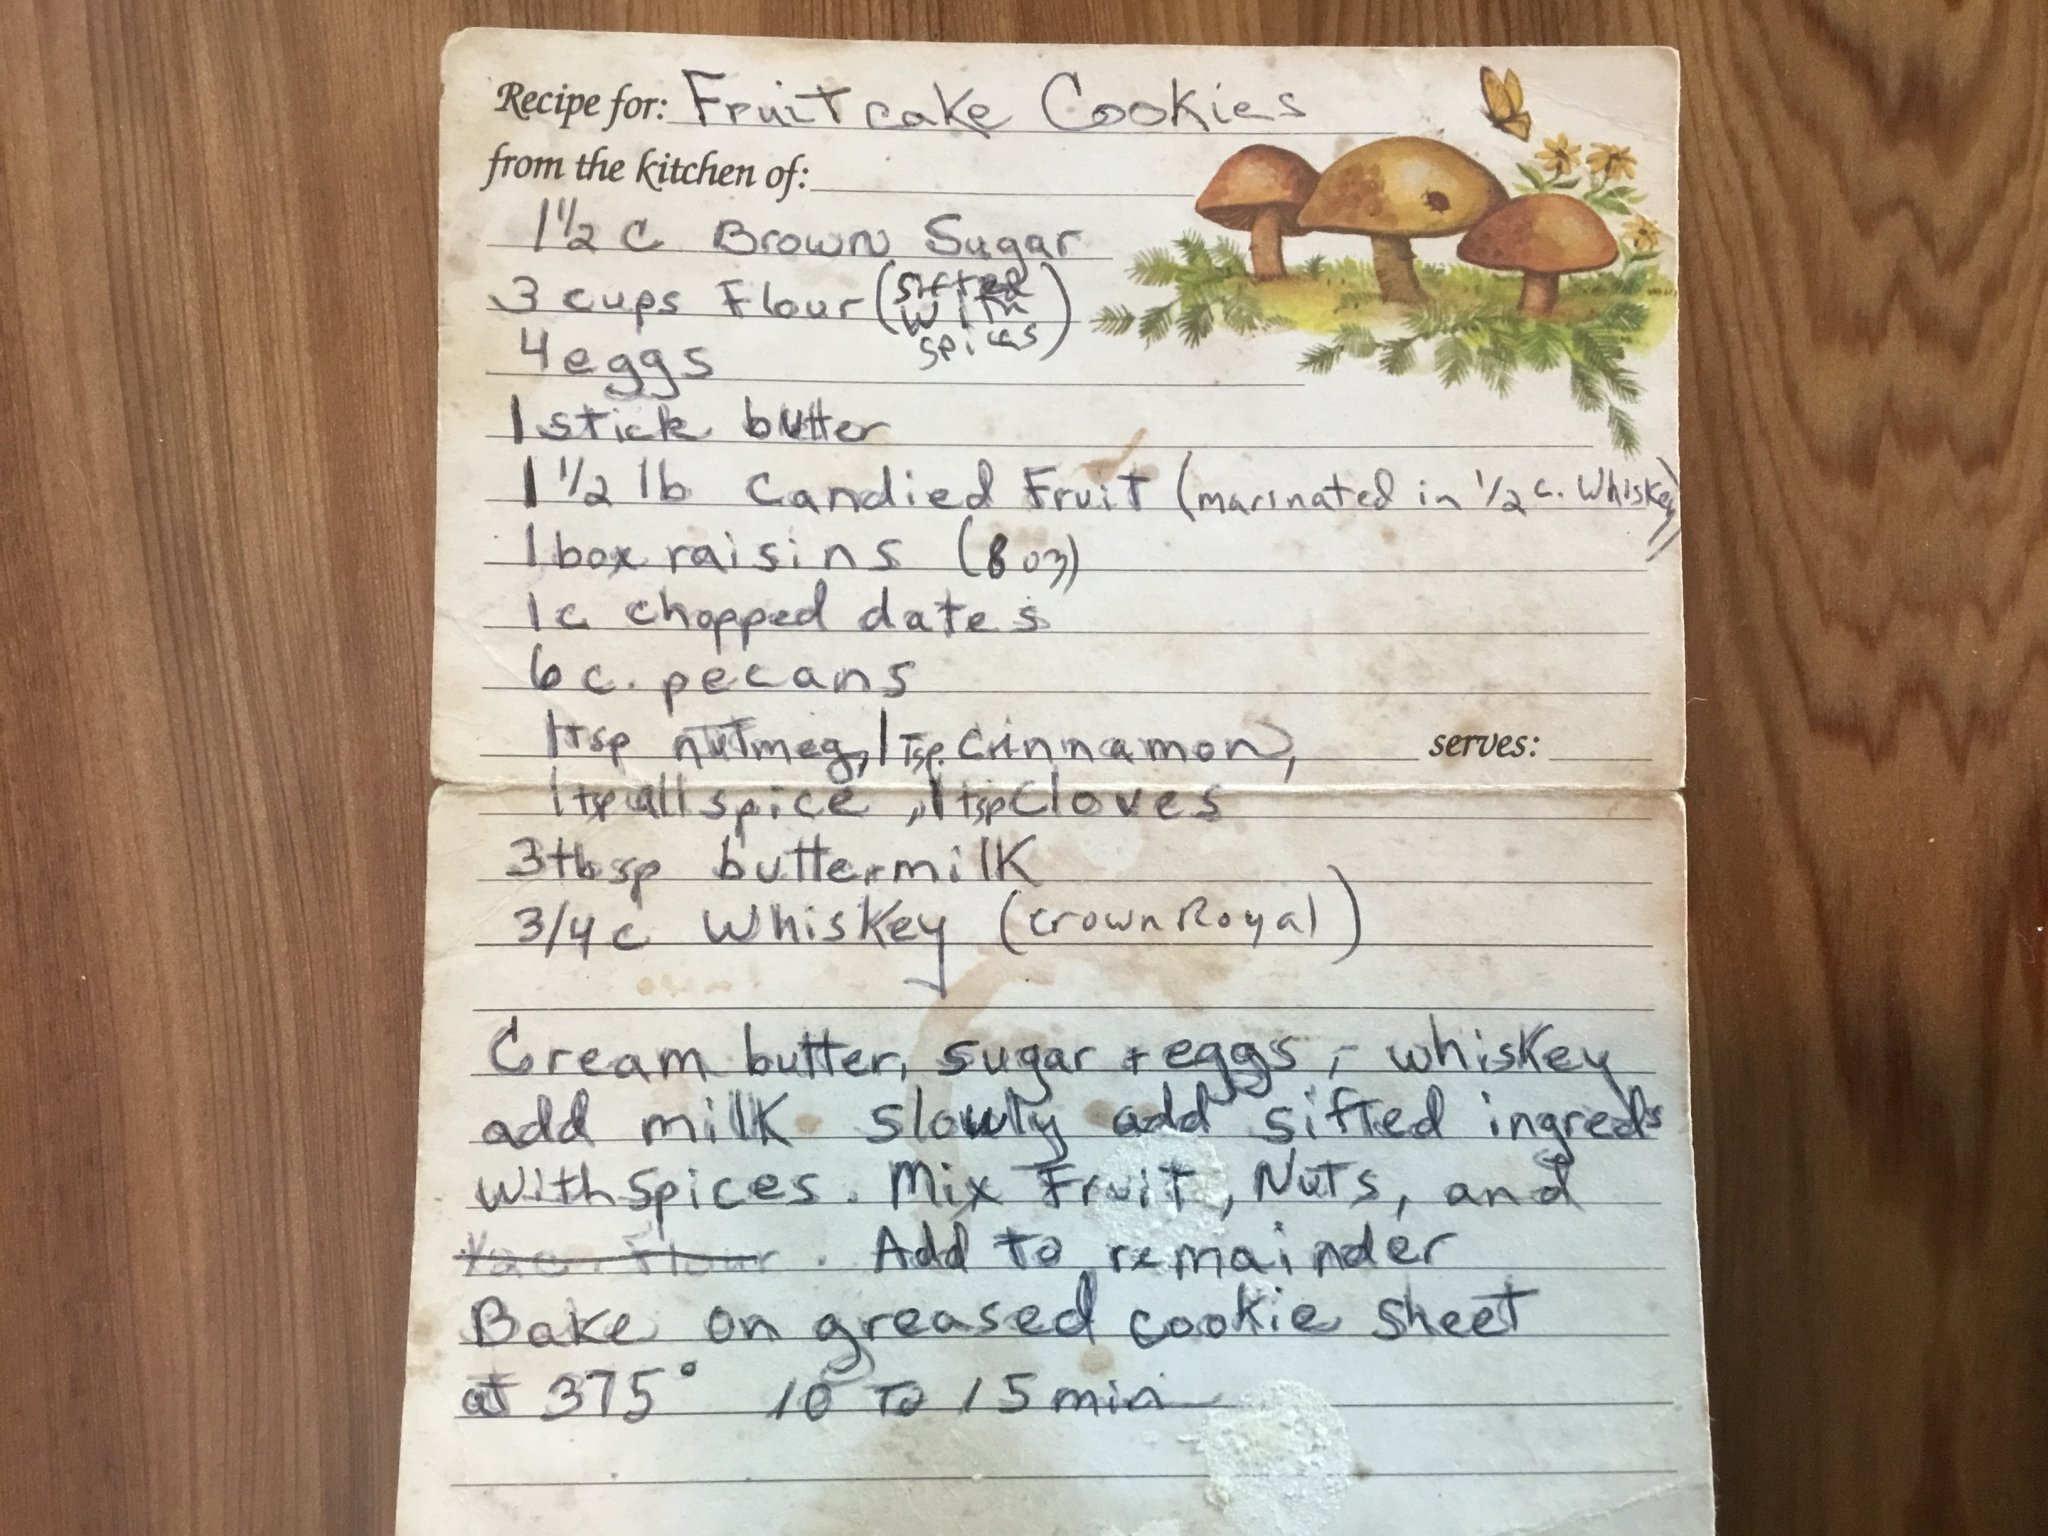 Recipe for: Fruitcake Cookies
from the kitchen of:
1 1/2 c Brown Sugar
3 cups Flour (sifted with spices)
4 eggs
1 stick butter
1 1/2 lb Candied Fruit (marinated in 1/2 c. Whiskey)
1 box raisins (8 oz)
1c chopped dates
6 c. pecans
1 tsp nutmeg, 1 Tsp. Cinnamon,
serves:
1 tsp allspice, 1 tsp Cloves
3 tbsp buttermilk
3/4 c Whiskey (Crown Royal)
Cream butter, sugar + eggs, - whiskey
add milk slowly add sifted ingreds
with spices. Mix Fruit, Nuts, and
Flour. Add to remainder
Bake on greased cookie sheet
at 375° 10 To 15 min